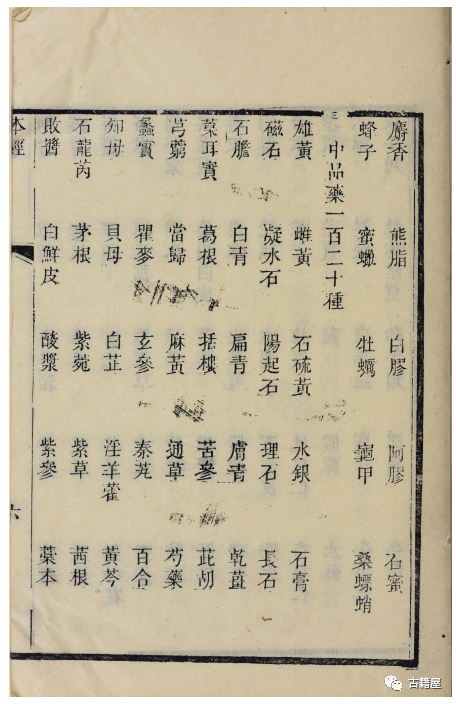 麝香 熊脂 白膠 阿膠 石蜜
蜂子 蜜蠟 牡蠣 龜甲 桑螵蛸
中品藥一百二十種
雄黃 雌黃 石硫黃 水銀 石膏
磁石 凝水石 陽起石 理石 長石
石膽 白青 扁青 膚青 乾薑
葈耳實 葛根 括樓 苦參 茈胡
芎藭 當歸 麻黃 通草 芍藥
蠡實 瞿麥 玄參 秦艽 百合
知母 貝母 白芷 淫羊藿 黃芩
石龍芮 茅根 紫菀 紫草 茜根
敗醬 白鮮皮 酸漿 紫參 藁本
本經 六
古籍屋